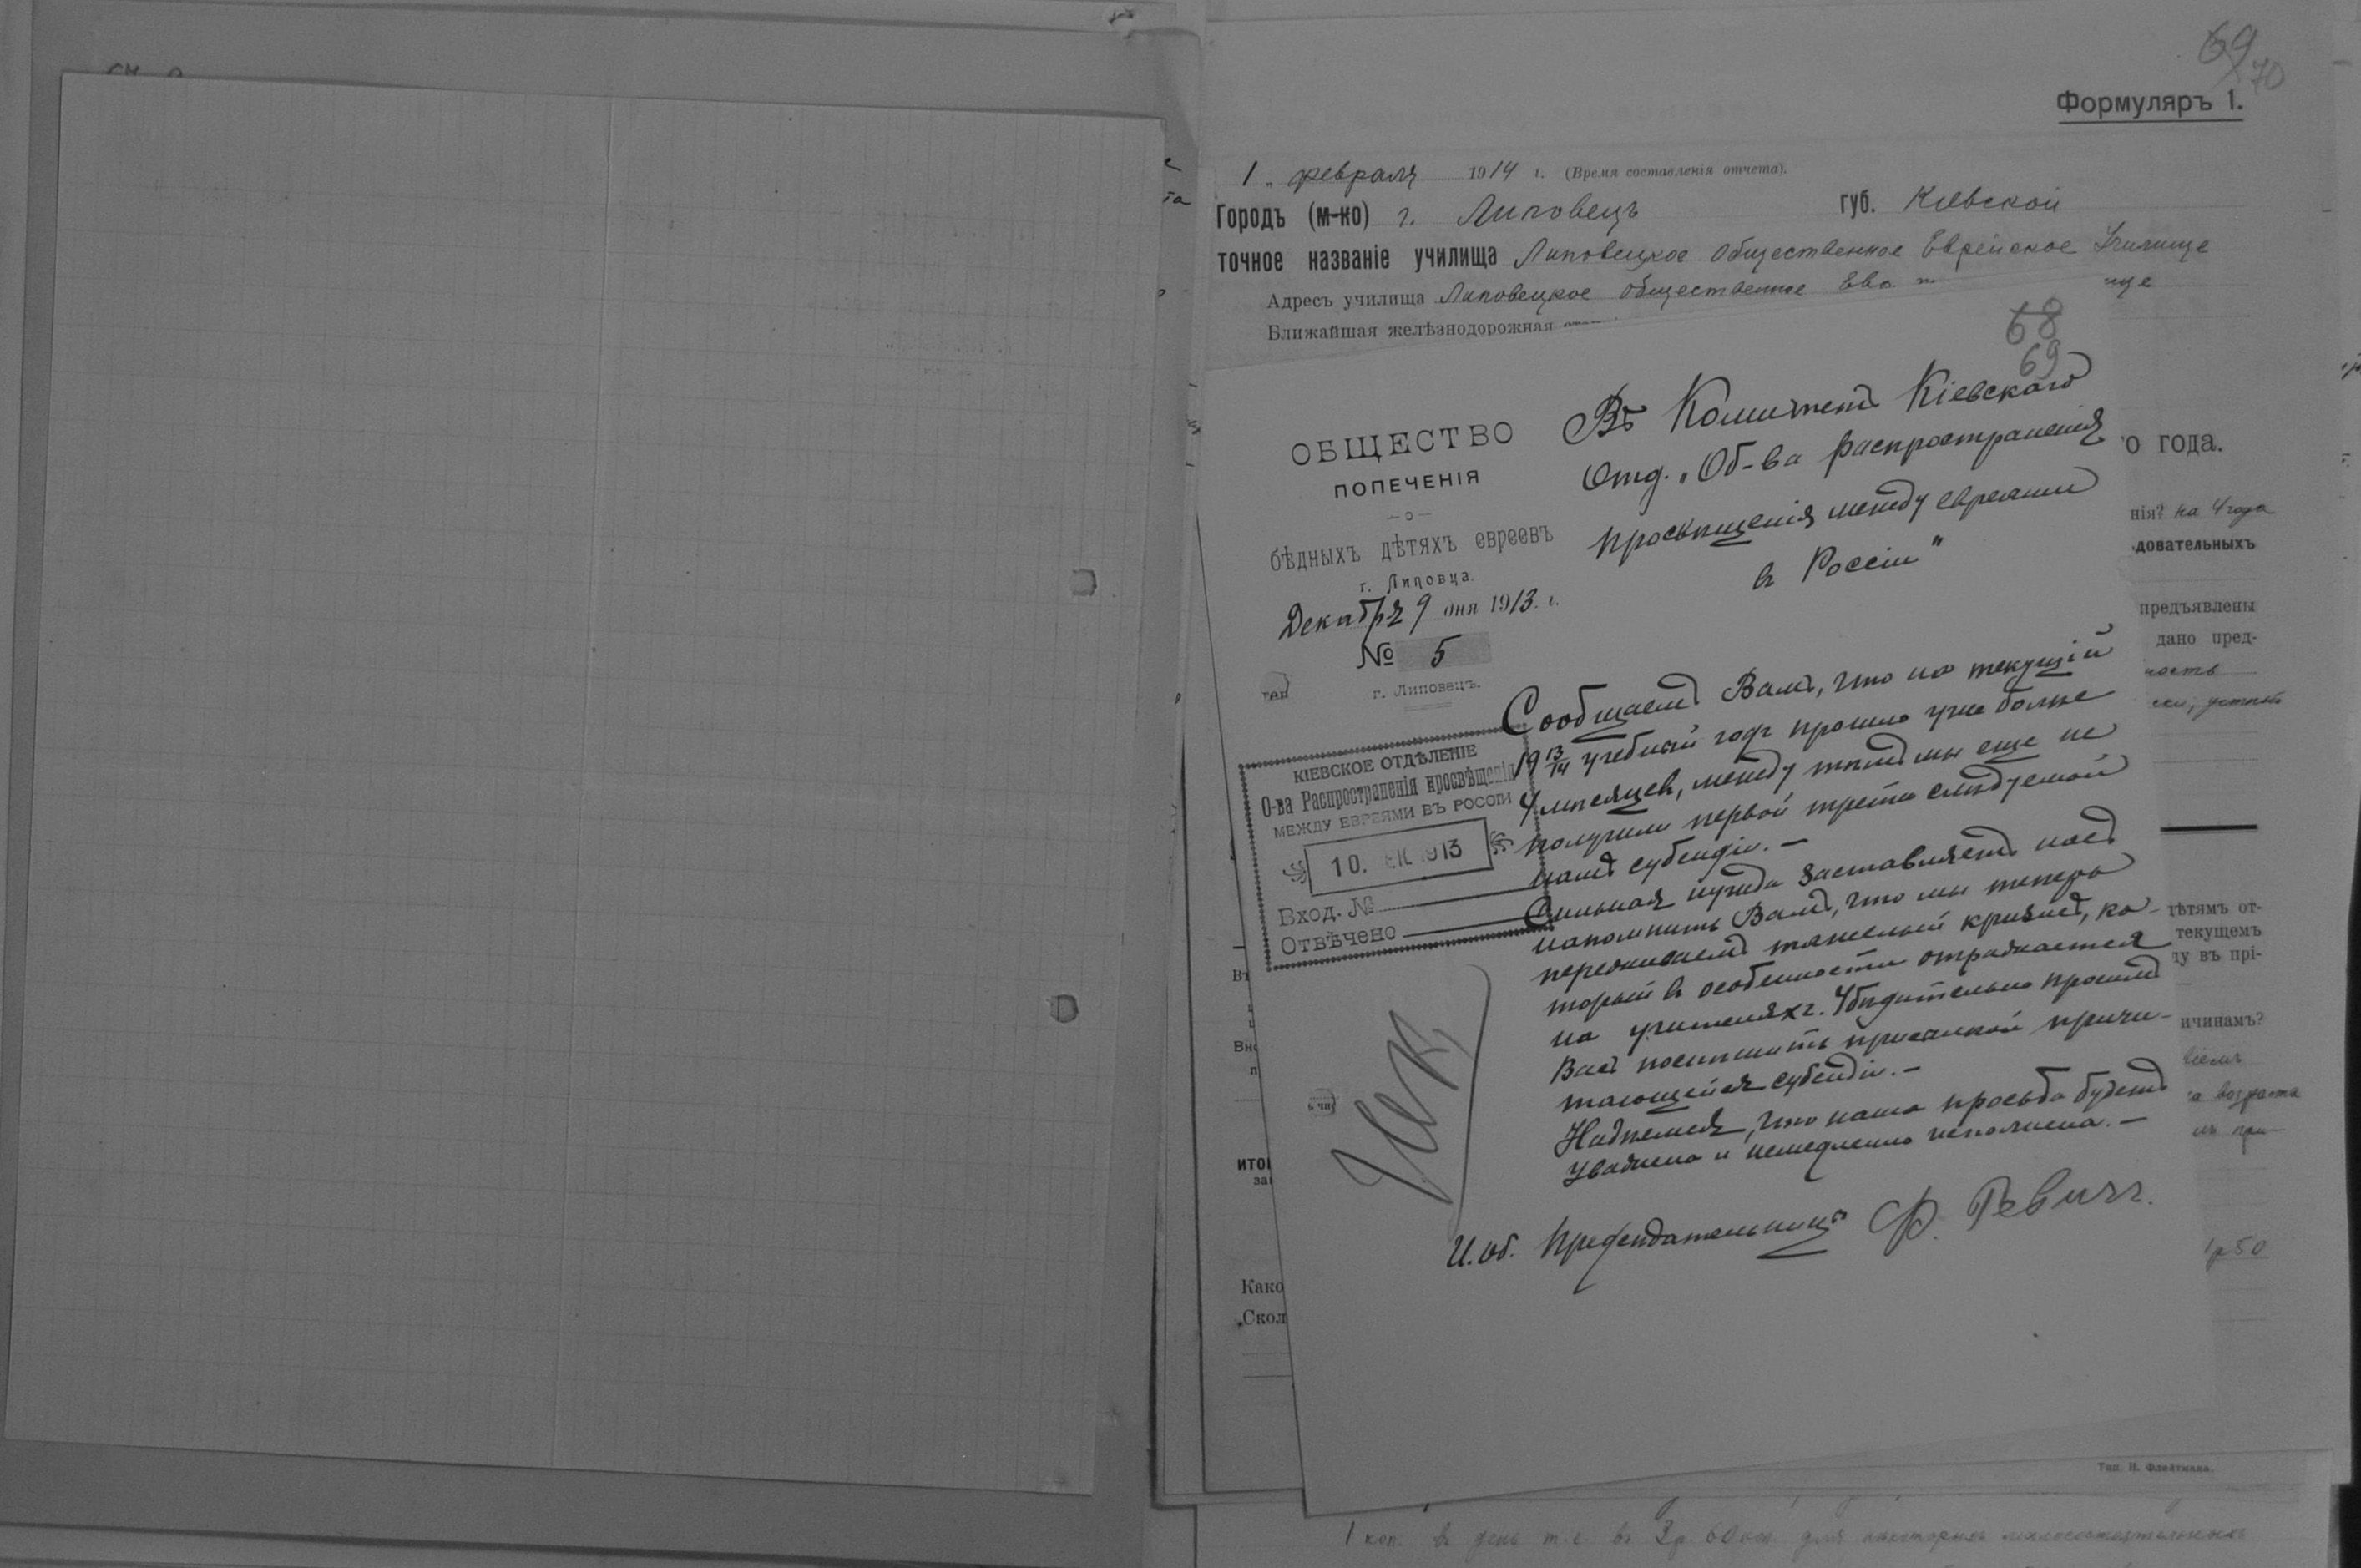 69
70
Формуляръ 1.
1 „ февраля 1914 г. (Время составленія отчета).
Городъ (м-ко) г. Липовецъ губ. Кіевской
точное названіе училища Липовецкое Общественное Еврейское Училище
Адресъ училища Липовецкое Общественное Евр
Ближайшая желѣзнодорожная
68
69
ОБЩЕСТВО
ПОПЕЧЕНІЯ
—о—
бѣдныхъ дѣтяхъ евреевъ
г. Липовца.
Декабря 9 дня 1913. г.
№ 5
г. Липовецъ.
Въ Комитетъ Кіевскаго
Отд. „Об-ва распространенія
просвѣщенія между евреями
въ Россіи"
КІЕВСКОЕ ОТДѢЛЕНІЕ
О-ва Распространенія просвѣщенія
МЕЖДУ ЕВРЕЯМИ ВЪ РОССІИ
10. ДЕК. 1913
Вход. №
Отвѣчено
Сообщаемъ Вамъ, что на текущій
1913/14 учебный годъ прошло уже болѣе
4 мѣсяцевъ, между тѣмъ мы еще не
получили первой трети слѣдуемой
намъ субсидіи. —
Сильная нужда заставляетъ насъ
напомнить Вамъ, что мы теперь
переживаемъ тяжелый кризисъ, ко-
торый въ особенности отражается
на учителяхъ. Убѣдительно просимъ
Васъ поспѣшить присылкой причи-
тающейся субсидіи. —
Надѣемся, что наша просьба будетъ
уважена и немедленно исполнена. —
И. об. Предсѣдательницы Ф. Ревичъ.
о года.
нія? на 4 года
довательныхъ
предъявлены
дано пред-
ность
дѣтямъ от-
текущемъ
ду въ прі-
ичинамъ?
возраста
1р 50
Вн
ито
за
Како
Скол
Тип. И. Флейтмана.
1 коп. въ день т.е. въ 3р. 60 коп. для